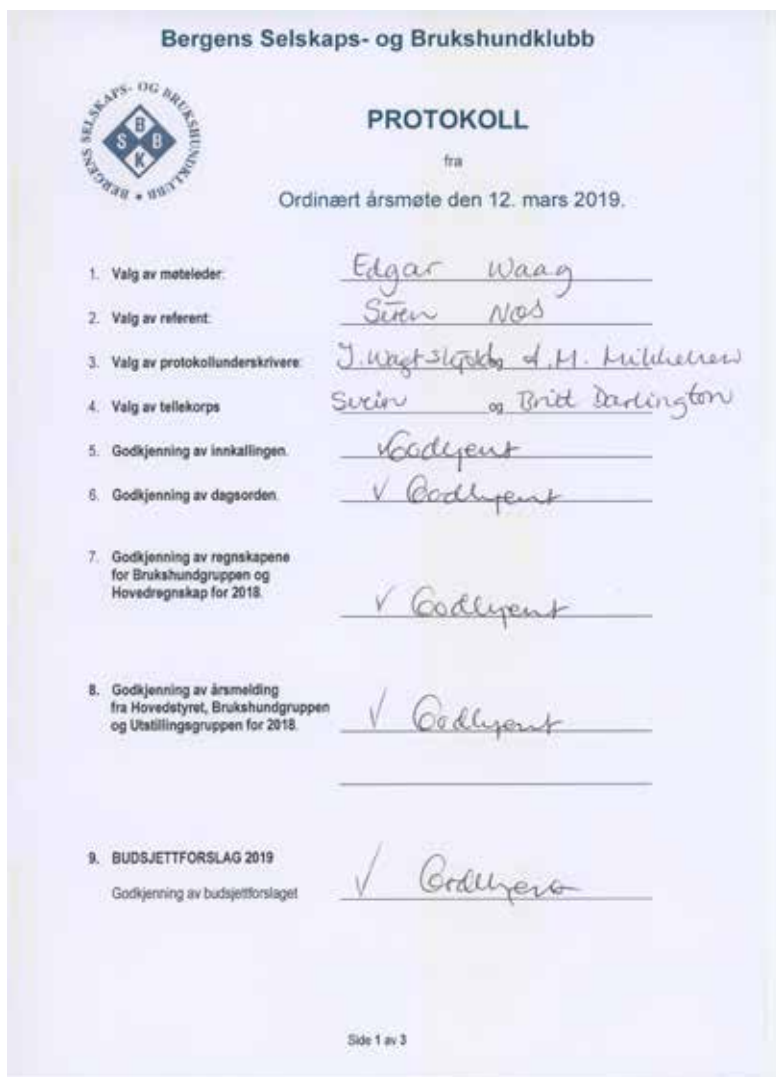 Bergens Selskaps- og Brukshundklubb
BERGENS SELSKAPS- OG BRUKSHUNDKLUBB
B
S B
K
PROTOKOLL
fra
Ordinært årsmøte den 12. mars 2019.
1. Valg av møteleder: Edgar Waag
2. Valg av referent: Siren
3. Valg av protokollunderskrivere: og
4. Valg av tellekorps Svein og Britt Darlington
5. Godkjenning av innkallingen. √ Godkjent
6. Godkjenning av dagsorden. √ Godkjent
7. Godkjenning av regnskapene
for Brukshundgruppen og
Hovedregnskap for 2018. √ Godkjent
8. Godkjenning av årsmelding
fra Hovedstyret, Brukshundgruppen
og Utstillingsgruppen for 2018. √ Godkjent
9. BUDSJETTFORSLAG 2019
Godkjenning av budsjettforslaget √ Godkjent
Side 1 av 3